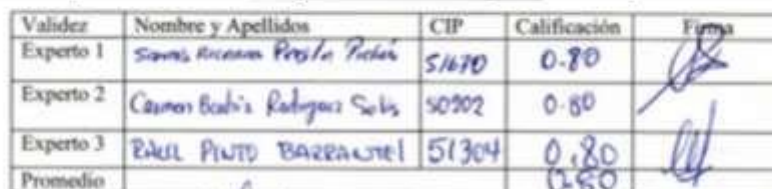 Validez Nombre y Apellidos CIP Calificación Firma
Experto 1 51670 0.80
Experto 2 Carmen Beatriz Rodriguez Solis 50202 0.80
Experto 3 RAUL PINTO BARRANTEl 51304 0,80
Promedio 0.80